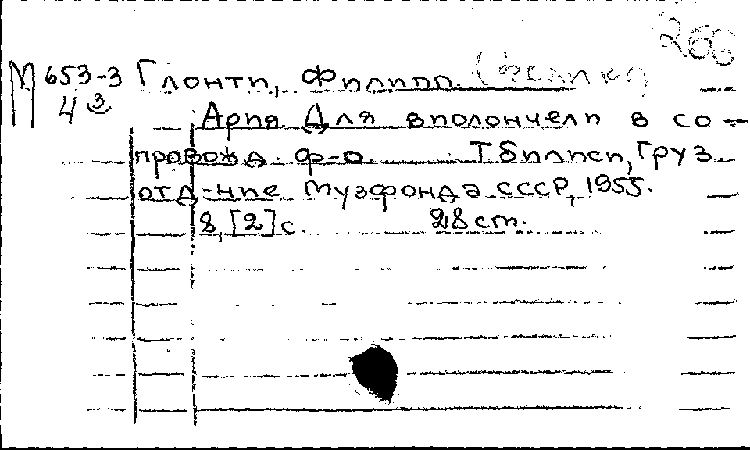 266
М 653-3 Глонти, Филипп.
4 3 Ария Для виолончели в со-
провожд. ф-о. Тбилиси, Груз.
отд-ние Музфонда СССР, 1955.
8, [2] с. 28 cm.